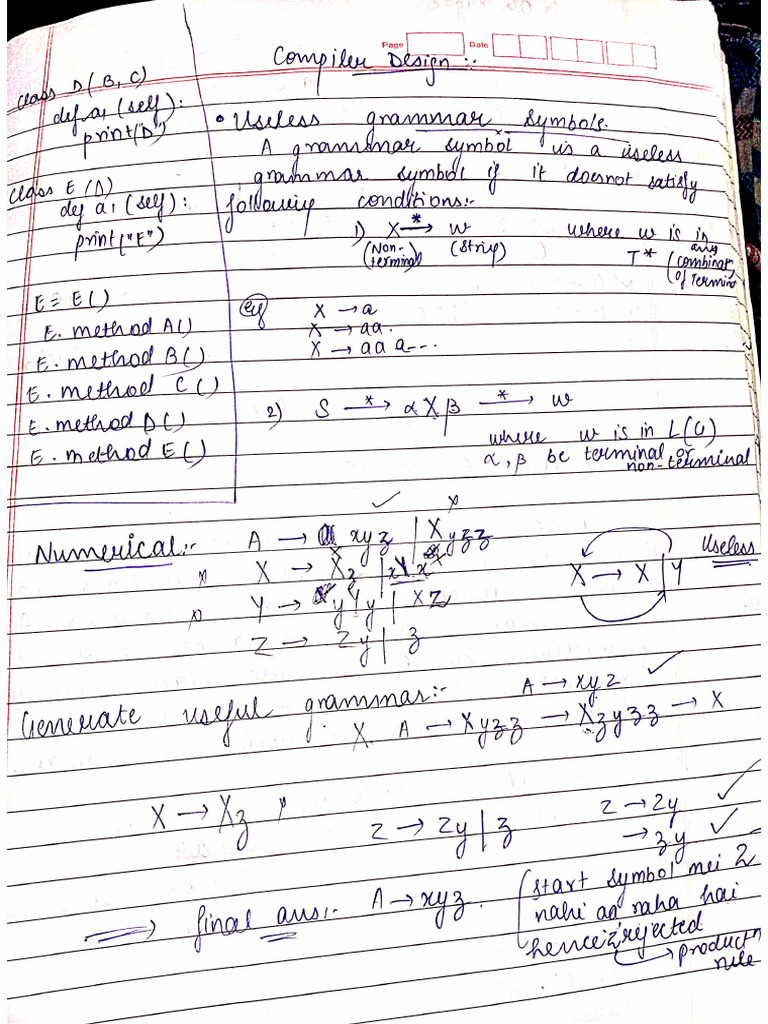 Page
Date
Compiler Design :-
class D(B, C)
def a1 (self):
print("D")
class E(A)
def a1 (self):
print("E")
E = E()
E. method A()
E. method B()
E. method C()
E. method D()
E. method E()
• Useless grammar symbols.
A grammar symbol is a useless
grammar symbol if it doesnot satisfy
following conditions:-
1) X →* w where w is in
(Non-terminal) (String) T* (any combinat of Termin
eg X → a
X → aa.
X → aaa...
2) S →* αXβ →* w
where w is in L(G)
α, β be terminal or
non-terminal
Numerical:- A → xyz | Xyzz
X → Xz | xYx
Y → yYy | XZ
Z → Zy | z
X → X | Y Useless
Generate useful grammar:- A → xyz ✓
X A → Xyzz → Xzyzz → X
X → Xz x
Z → Zy | z
Z → Zy ✓
→ zy ✓
⇒ final ans:- A → xyz.
(start symbol mei Z
nahi aa raha hai
hence rejected
→ product
rule